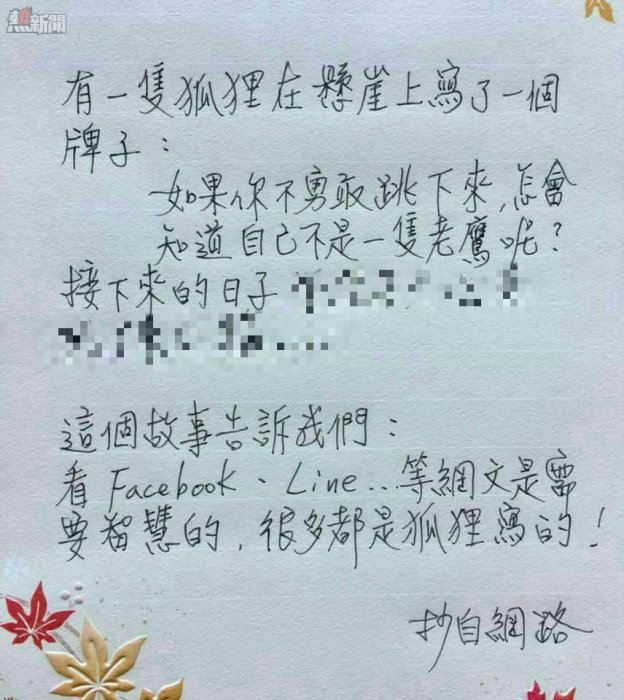 熱新聞
有一隻狐狸在懸崖上寫了一個
牌子：
如果你不勇敢跳下來，怎會
知道自己不是一隻老鷹呢？
接下來的日子
這個故事告訴我們：
看 Facebook、Line...等網文是需
要智慧的，很多都是狐狸寫的！
抄自網路